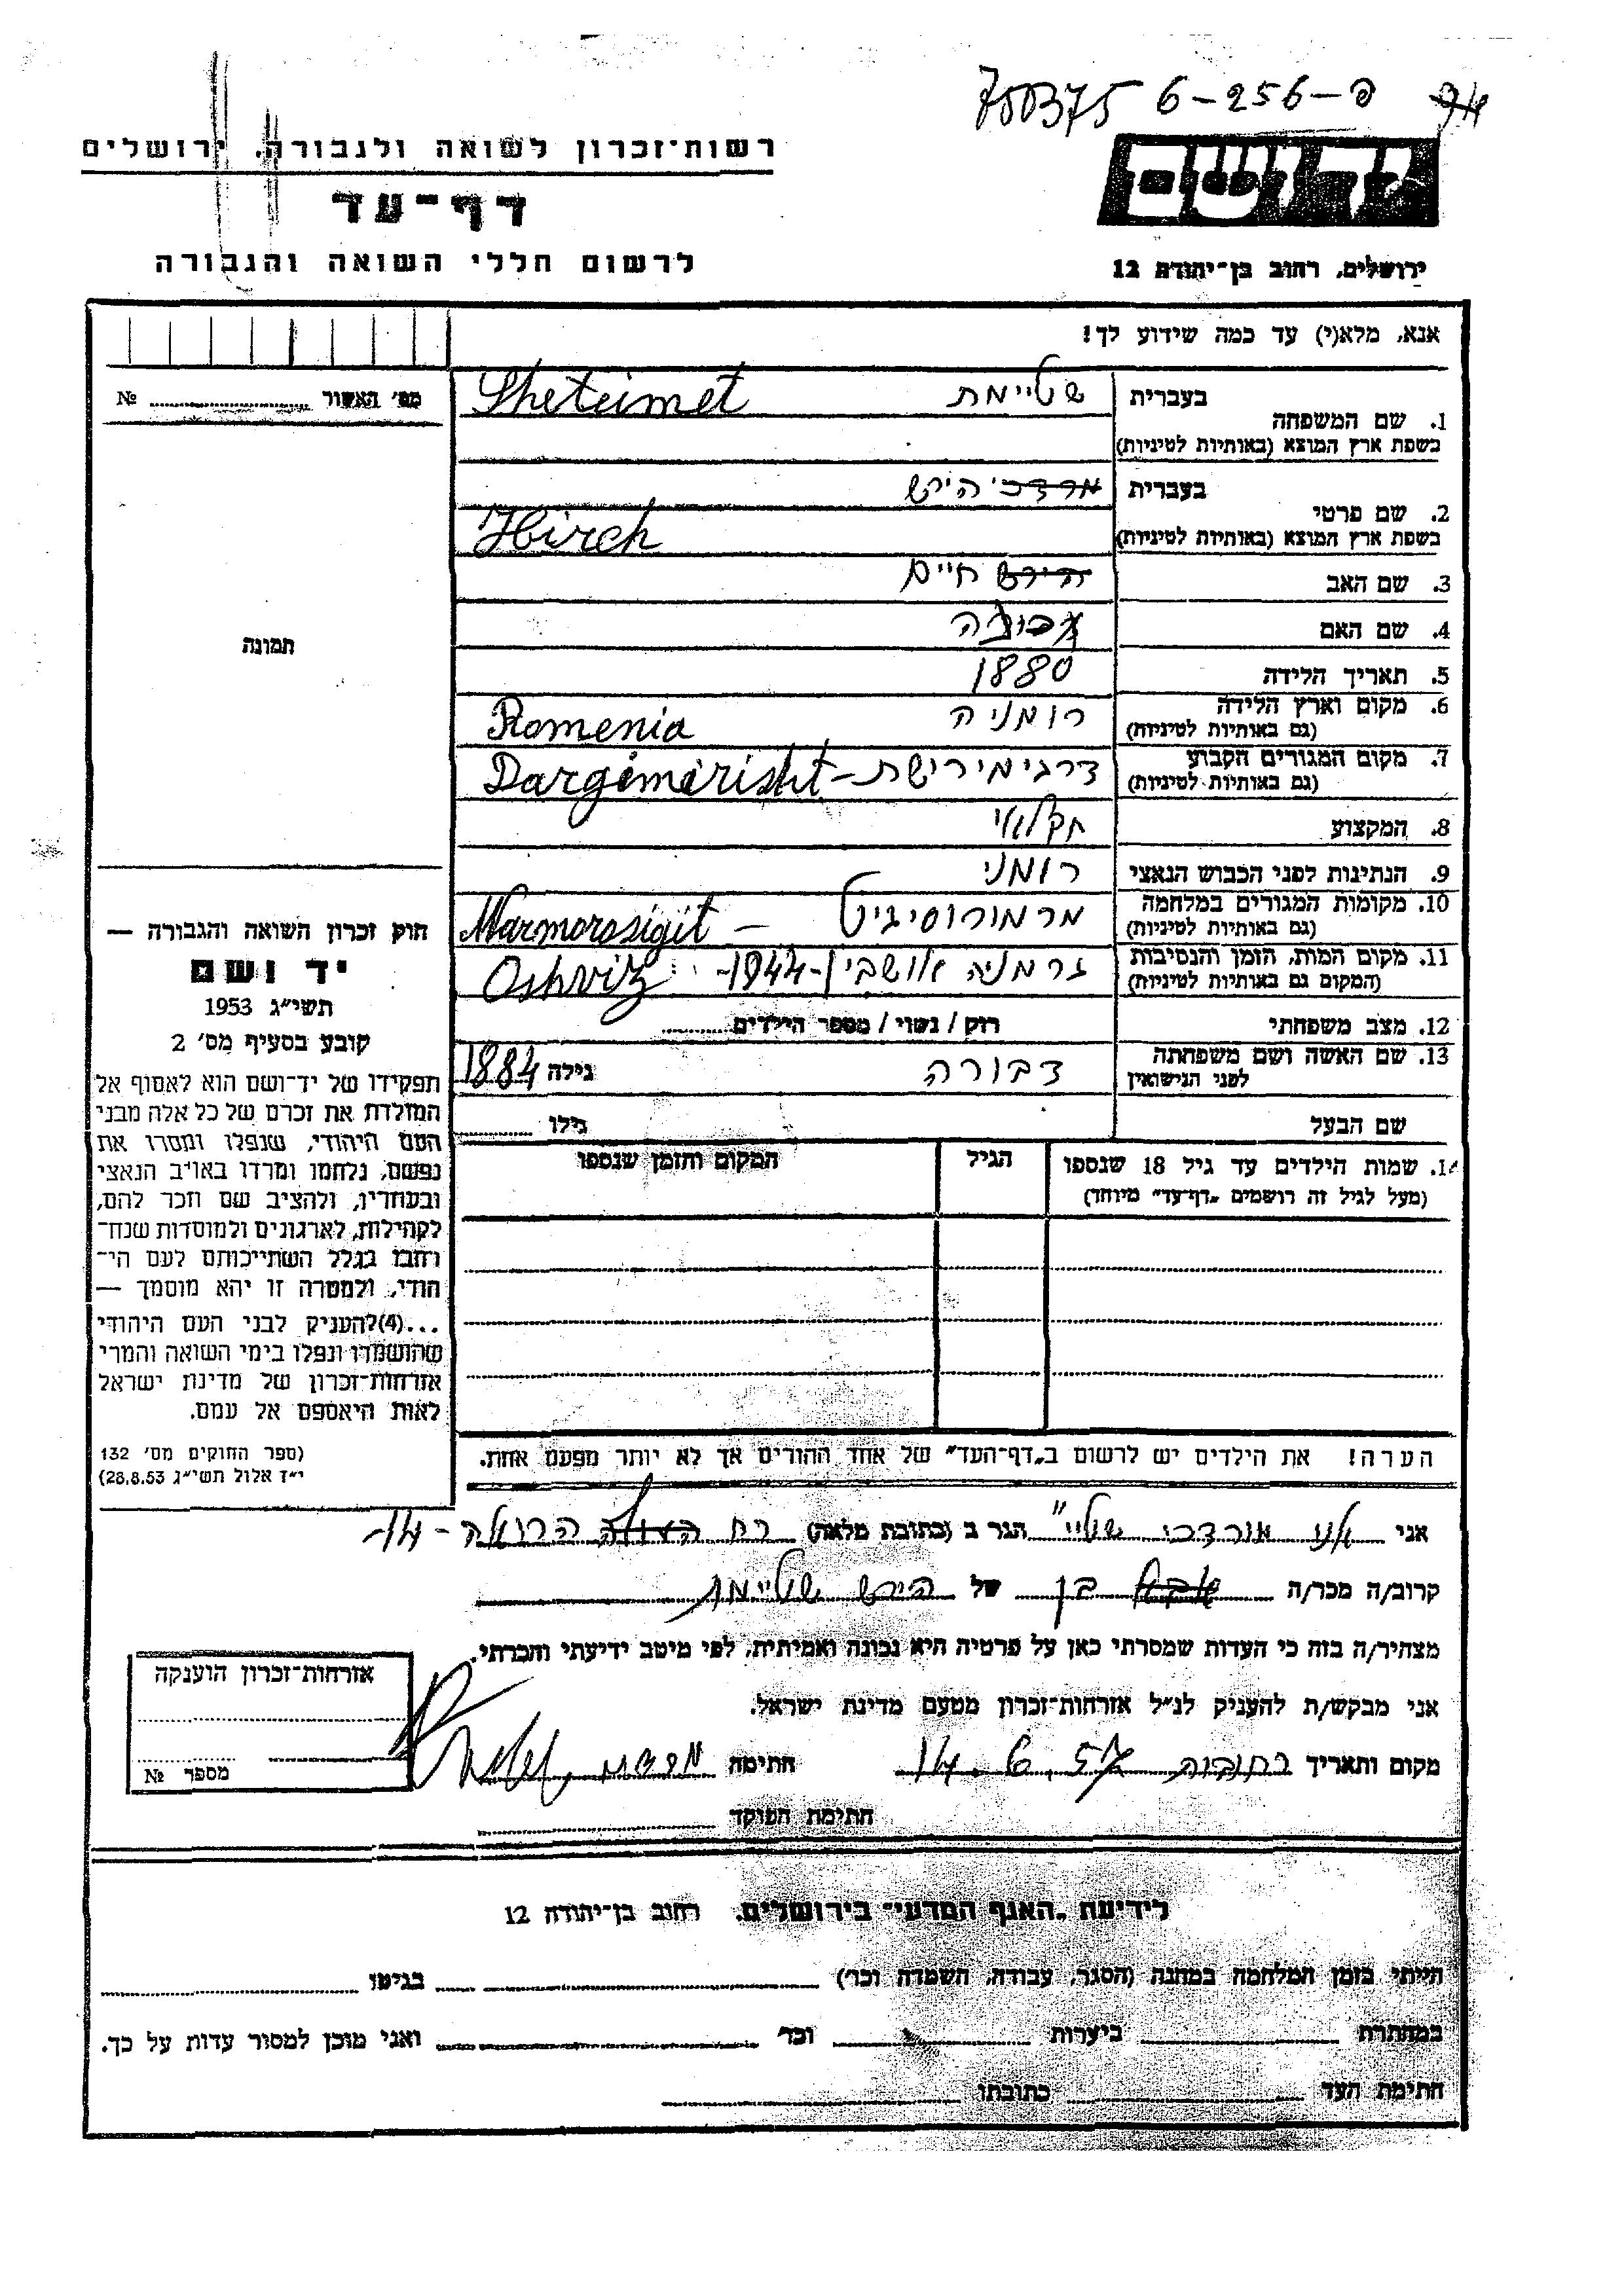 750375 6-256-פ
רשות־זכרון לשואה ולגבורה, ירושלים
דף־עד
לרשום חללי השואה והגבורה
יד ושם
ירושלים, רחוב בן־יהודה 12
אנא, מלא(י) עד כמה שידוע לך!
מס׳ האשור № 
1. שם המשפחה בעברית שטיימת Shteimet
בשפת ארץ המוצא (באותיות לטיניות)
2. שם פרטי בעברית מרדכי הירש
בשפת ארץ המוצא (באותיות לטיניות) Hirch
3. שם האב הירש חיים
4. שם האם
תמונה
5. תאריך הלידה 1880
6. מקום וארץ הלידה רומניה Romenia
(גם באותיות לטיניות)
7. מקום המגורים הקבוע דרגימירישת - Dargemerisht
(גם באותיות לטיניות)
8. המקצוע חקלאי
9. הנתינות לפני הכבוש הנאצי רומני
10. מקומות המגורים במלחמה מרמורוסיגיט - Marmorosigit
(גם באותיות לטיניות)
11. מקום המות, הזמן והנסיבות גרמניה אושבין -1944- Oshviz
(המקום גם באותיות לטיניות)
12. מצב משפחתי רוק / נשוי / מספר הילדים
13. שם האשה ושם משפחתה דבורה גילה 1884
לפני הנישואין
שם הבעל גילו
14. שמות הילדים עד גיל 18 שנספו הגיל המקום והזמן שנספו
(מעל לגיל זה רושמים „דף־עד״ מיוחד)
הערה! את הילדים יש לרשום ב„דף־העד״ של אחד ההורים אך לא יותר מפעם אחת.
חוק זכרון השואה והגבורה —
יד ושם
תשי״ג 1953
קובע בסעיף מס׳ 2
תפקידו של יד־ושם הוא לאסוף אל
המולדת את זכרם של כל אלה מבני
העם היהודי, שנפלו ומסרו את
נפשם, נלחמו ומרדו באויב הנאצי
ובעוזריו, ולהציב שם וזכר להם,
לקהילות, לארגונים ולמוסדות שנח־
רחבו בגלל השתייכותם לעם הי־
הודי, ולמטרה זו יהא מוסמך —
...(4)להעניק לבני העם היהודי
שהושמדו ונפלו בימי השואה והמרי
אזרחות־זכרון של מדינת ישראל
לאות היאספם אל עמם.
(ספר החוקים מס׳ 132
י״ז אלול תשי״ג 28.8.53)
אני אני מורדכי שטיי״ הגר ב (כתובת מלאה) רח הרואה -14
קרוב/ה מכר/ה בן של הירש שטיימת
מצהיר/ה בזה כי העדות שמסרתי כאן על פרטיה היא נכונה ואמיתית, לפי מיטב ידיעתי והכרתי.
אני מבקש/ת להעניק לנ״ל אזרחות־זכרון מטעם מדינת ישראל.
מקום ותאריך רחובות 14.6.57 חתימה
חתימת הפוקד
אזרחות־זכרון הוענקה
מספר №
לידיעת „האגף המדעי״ בירושלים, רחוב בן־יהודה 12
הייתי בזמן המלחמה במחנה (הסגר, עבודה, השמדה וכו׳) בגיטו
במחתרת ביערות וכו׳ ואני מוכן למסור עדות על כך.
חתימת העד כתובתו